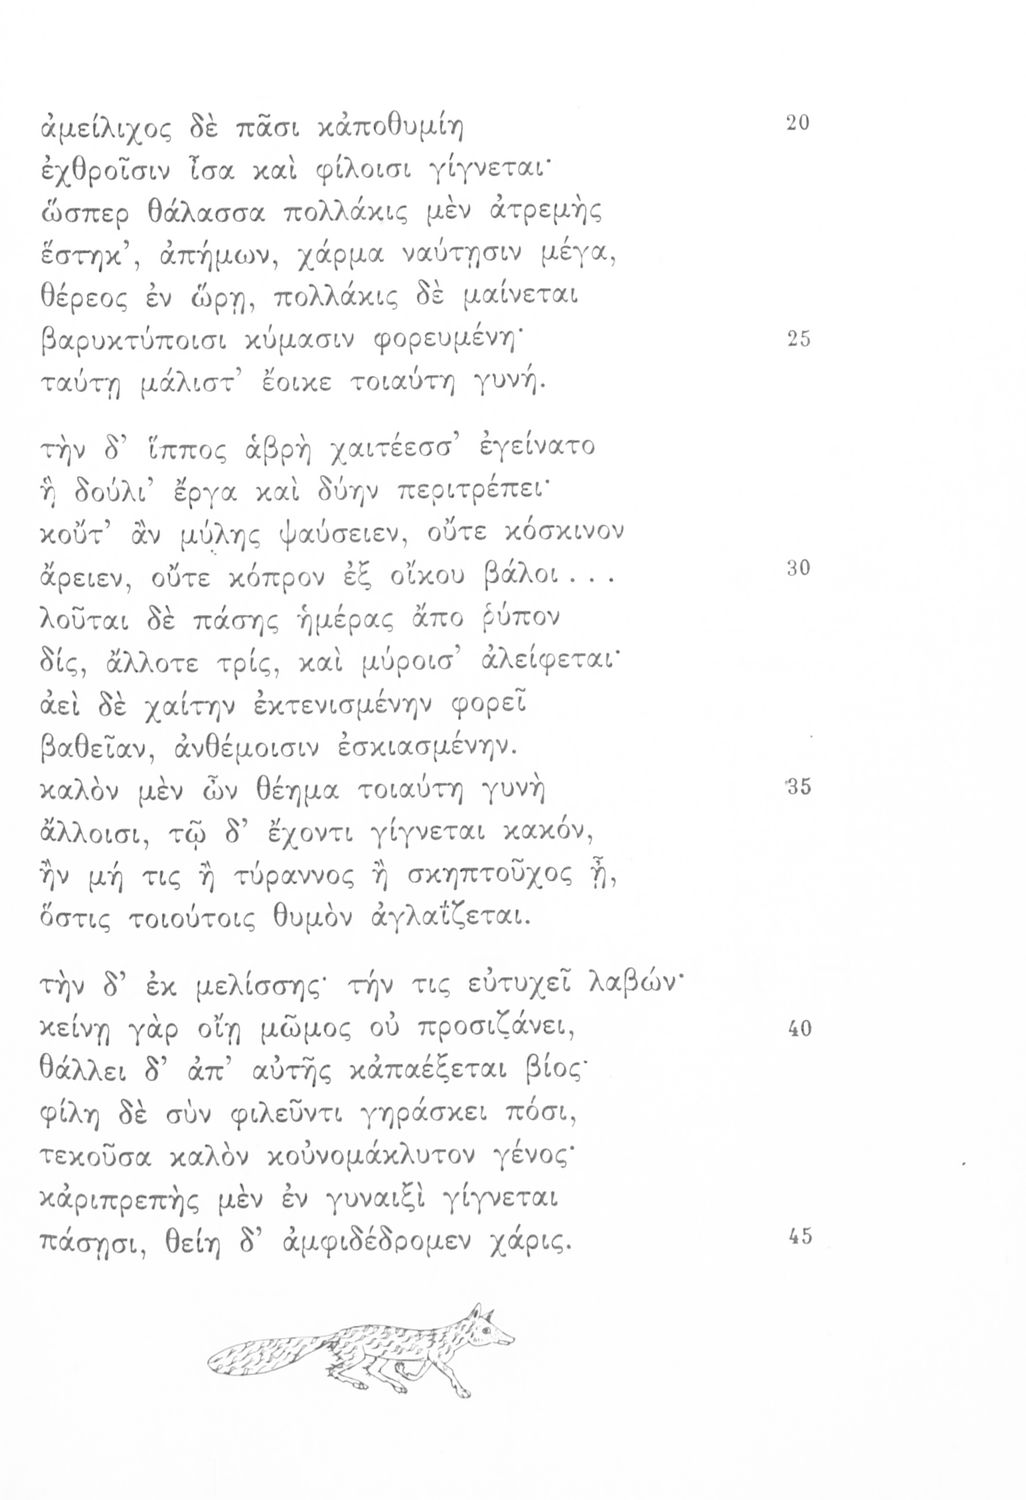 ἀμείλιχος δὲ πᾶσι κἀποθυμίη 20
ἐχθροῖσιν ἶσα καὶ φίλοισι γίγνεται·
ὥσπερ θάλασσα πολλάκις μὲν ἀτρεμὴς
ἕστηκ’, ἀπήμων, χάρμα ναύτῃσιν μέγα,
θέρεος ἐν ὥρῃ, πολλάκις δὲ μαίνεται
βαρυκτύποισι κύμασιν φορευμένη· 25
ταύτῃ μάλιστ’ ἔοικε τοιαύτη γυνή.
τὴν δ’ ἵππος ἁβρὴ χαιτέεσσ’ ἐγείνατο
ἣ δούλι’ ἔργα καὶ δύην περιτρέπει·
κοὔτ’ ἂν μύλης ψαύσειεν, οὔτε κόσκινον
ἄρειεν, οὔτε κόπρον ἐξ οἴκου βάλοι . . . 30
λοῦται δὲ πάσης ἡμέρας ἄπο ῥύπον
δίς, ἄλλοτε τρίς, καὶ μύροισ’ ἀλείφεται·
ἀεὶ δὲ χαίτην ἐκτενισμένην φορεῖ
βαθεῖαν, ἀνθέμοισιν ἐσκιασμένην.
καλὸν μὲν ὦν θέημα τοιαύτη γυνὴ 35
ἄλλοισι, τῷ δ’ ἔχοντι γίγνεται κακόν,
ἢν μή τις ἢ τύραννος ἢ σκηπτοῦχος ᾖ,
ὅστις τοιούτοις θυμὸν ἀγλαΐζεται.
τὴν δ’ ἐκ μελίσσης· τήν τις εὐτυχεῖ λαβών·
κείνῃ γὰρ οἴῃ μῶμος οὐ προσιζάνει, 40
θάλλει δ’ ἀπ’ αὐτῆς κἀπαέξεται βίος·
φίλη δὲ σὺν φιλεῦντι γηράσκει πόσι,
τεκοῦσα καλὸν κοὐνομάκλυτον γένος·
κἀριπρεπὴς μὲν ἐν γυναιξὶ γίγνεται
πάσῃσι, θείη δ’ ἀμφιδέδρομεν χάρις. 45